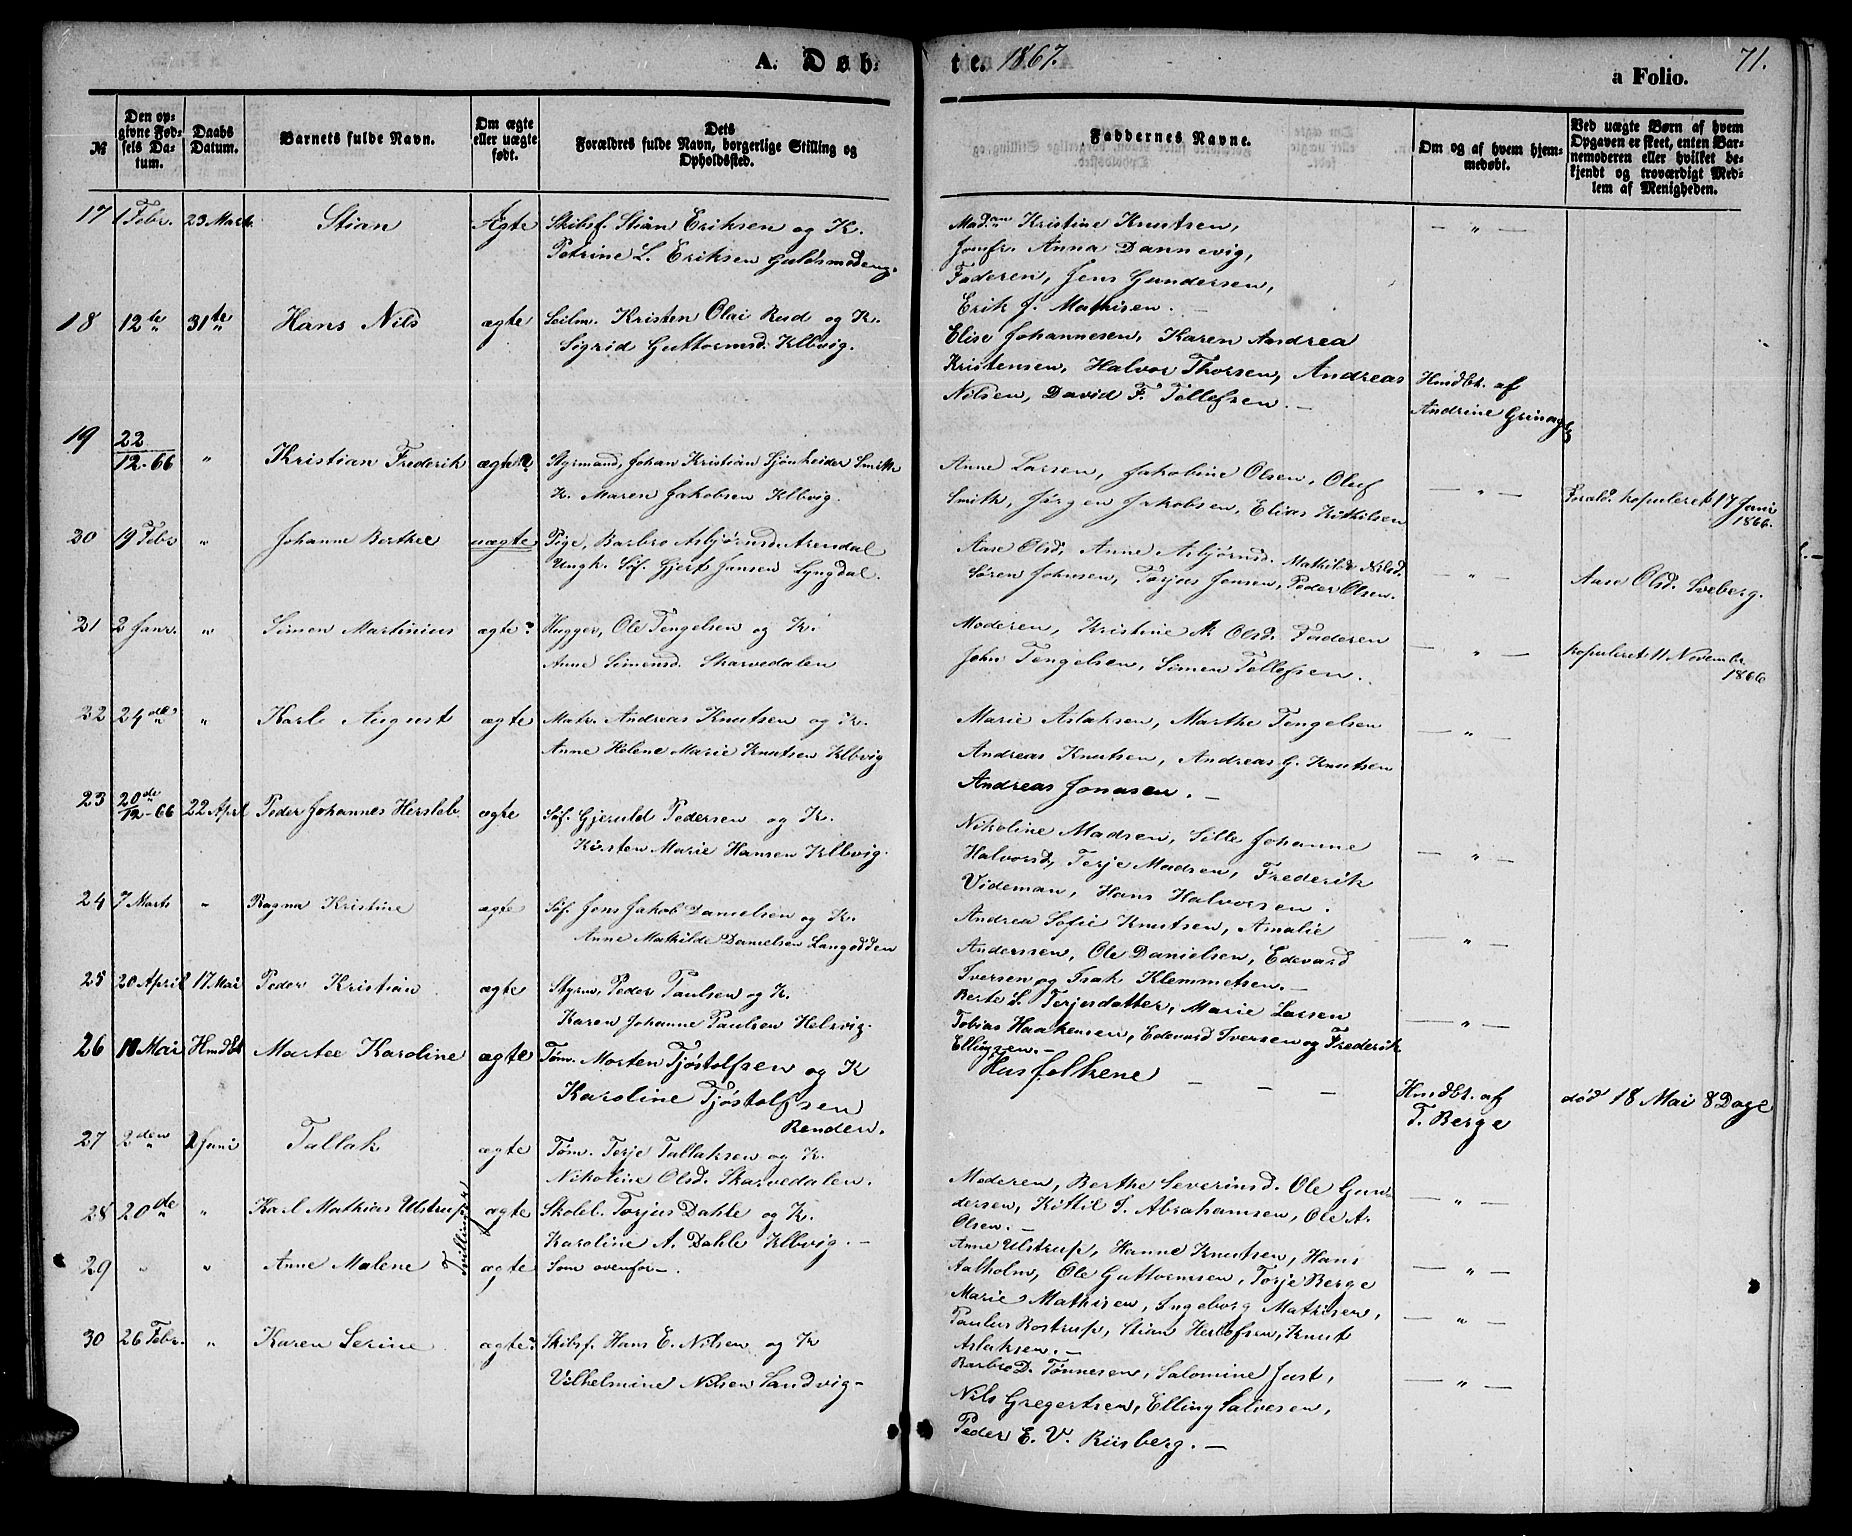 A. Døb-
te. 1867.
71.
a Folio.
№
Den op-
givne Fød-
sels Da-
tum.
Daabs
Datum.
Barnets fulde Navn.
Om ægte
eller uægte
født.
Dets
Forældres fulde Navn, borgerlige Stilling og
Opholdssted.
Faddernes Navne.
Om og af hvem hjem-
medøbt.
Ved uægte Børn af hvem
Opgaven er skeet, enten Bar-
nemoderen eller hvilket be-
kjendt og troværdigt Med-
lem af Menigheden.
17 1 Febr. 23 Marts Stian Ægte Skibsf. Stian Eriksen og K.
Petrine L. Eriksen
Madam Kristine Knutsen,
Jomfr. Anna Dannevig,
Faderen, Jens Gundersen,
Erik J. Mathisen. —
— " —
18 12te 31te Hans Nils ægte Seilm. Kristen Olai Rud og K.
Sigrid Guttormsd. Klbvig.
Elise Johannesen, Karen Andrea
Kristensen, Halvor Thorsen, Andreas
Nilsen, David F. Tellefsen. —
Hmdbt. af
Andrine
19 22/12-66 " Kristian Frederik ægte? Styrmand, Johan Kristian Smith
K. Maren Jakobsen Klbvig.
Anne Larsen, Jakobine Olsen, Oluf
Smith, Jørgen Jakobsen, Elias Kittilsen
— " —
Foræld. kopuleret 17 Juni
1866.
20 19 Febr " Johanne Berthee uægte Pige, Barbro Asbjørnsd. Arendal
Ungk. Søf. Gjert Jansen Lyngdal.
Aase Olsd, Anne Asbjørnsd. Mathilde Nilsd.
Søren Johnsen, Torjus Jensen, Peder Olsen.
— " —
Aase Olsd. Sveberg.
21 2 Janr. " Simen Martinius ægte? Hugger, Ole Tengelsen og K.
Anne Simensd. Skarvedalen
Moderen, Kristine A. Olsd. Faderen
John Tengelsen, Simen Tellefsen.
— " —
kopuleret 11 Novembr
1866
22 24de " Karl August ægte Matr. Andreas Knutsen og K.
Anne Helene Marie Knutsen Klbvig
Marie Aslaksen, Marthe Tengelsen
Andreas Knutsen, Andreas G. Knutsen
Andreas Jonasen. —
— " —
23 20de/12-66 22 April Peder Johannes Hersleb ægte Søf. Gjeruld Pedersen og K.
Kirsten Marie Hansen Klbvig.
Nikoline Madsen, Sille Johanne
Halvorsd, Terje Madsen, Frederik
Videman, Hans Halvorsen.
— " —
24 7 Marts " Ragna Kristine ægte Søf. Jens Jakob Danielsen og K.
Anne Mathilde Danielsen Langodden
Andrea Sofie Knutsen, Amalie
Anderssen, Ole Danielsen, Edevard
Iversen og Isak Klemmetsen. —
— " —
25 20 April 17 Mai Peder Kristian ægte Styrm. Peder Paulsen og K.
Karen Johanne Paulsen Helsvig.
Berte S. Terjesdatter, Marie Larsen
Tobias Haakensen, Edevard Iversen og Frederik
Ellingsen. —
— " —
26 10 Mai Hmdbt Martee Karoline ægte Tøm. Morten Tjøstolfsen og K
Karoline Tjøstolfsen
Renden.
Husfolkene — — —
Hmdbt. af
T. Berge
død 18 Mai 8 Dage
27 2den 2 Juni Tallak ægte Tøm. Terje Tallaksen og K.
Nikoline Olsd. Skarvedalen.
Moderen, Berthe Severinsd. Ole Gun-
dersen, Kittil S. Abrahamsen, Ole A.
Olsen. —
— " —
28 20de " Karl Mathias Ulstrup Tvillinger ægte Skolel. Torjus Dahle og K.
Karoline A. Dahle Klbvig. —
Anne Ulstrup, Hanne Knutsen, Hans
Aalholm, Ole Guttormsen, Torje Berge
— " —
29 " " Anne Malene ægte Som ovenfor —.
Marie Mathisen, Ingeborg Mathisen,
Paulus Rostrup, Stian Herlofsen, Knut
Aslaksen. —
— " —
30 26 Febr. " Karen Serine ægte: Skibsf. Hans E. Nilsen og K
Vilhelmine Nilsen Sandvig —
Barbro D. Tønnesen, Salomine Just,
Nils Gregertsen, Elling Salvesen,
Peder E. V. Riisberg. —
— " —